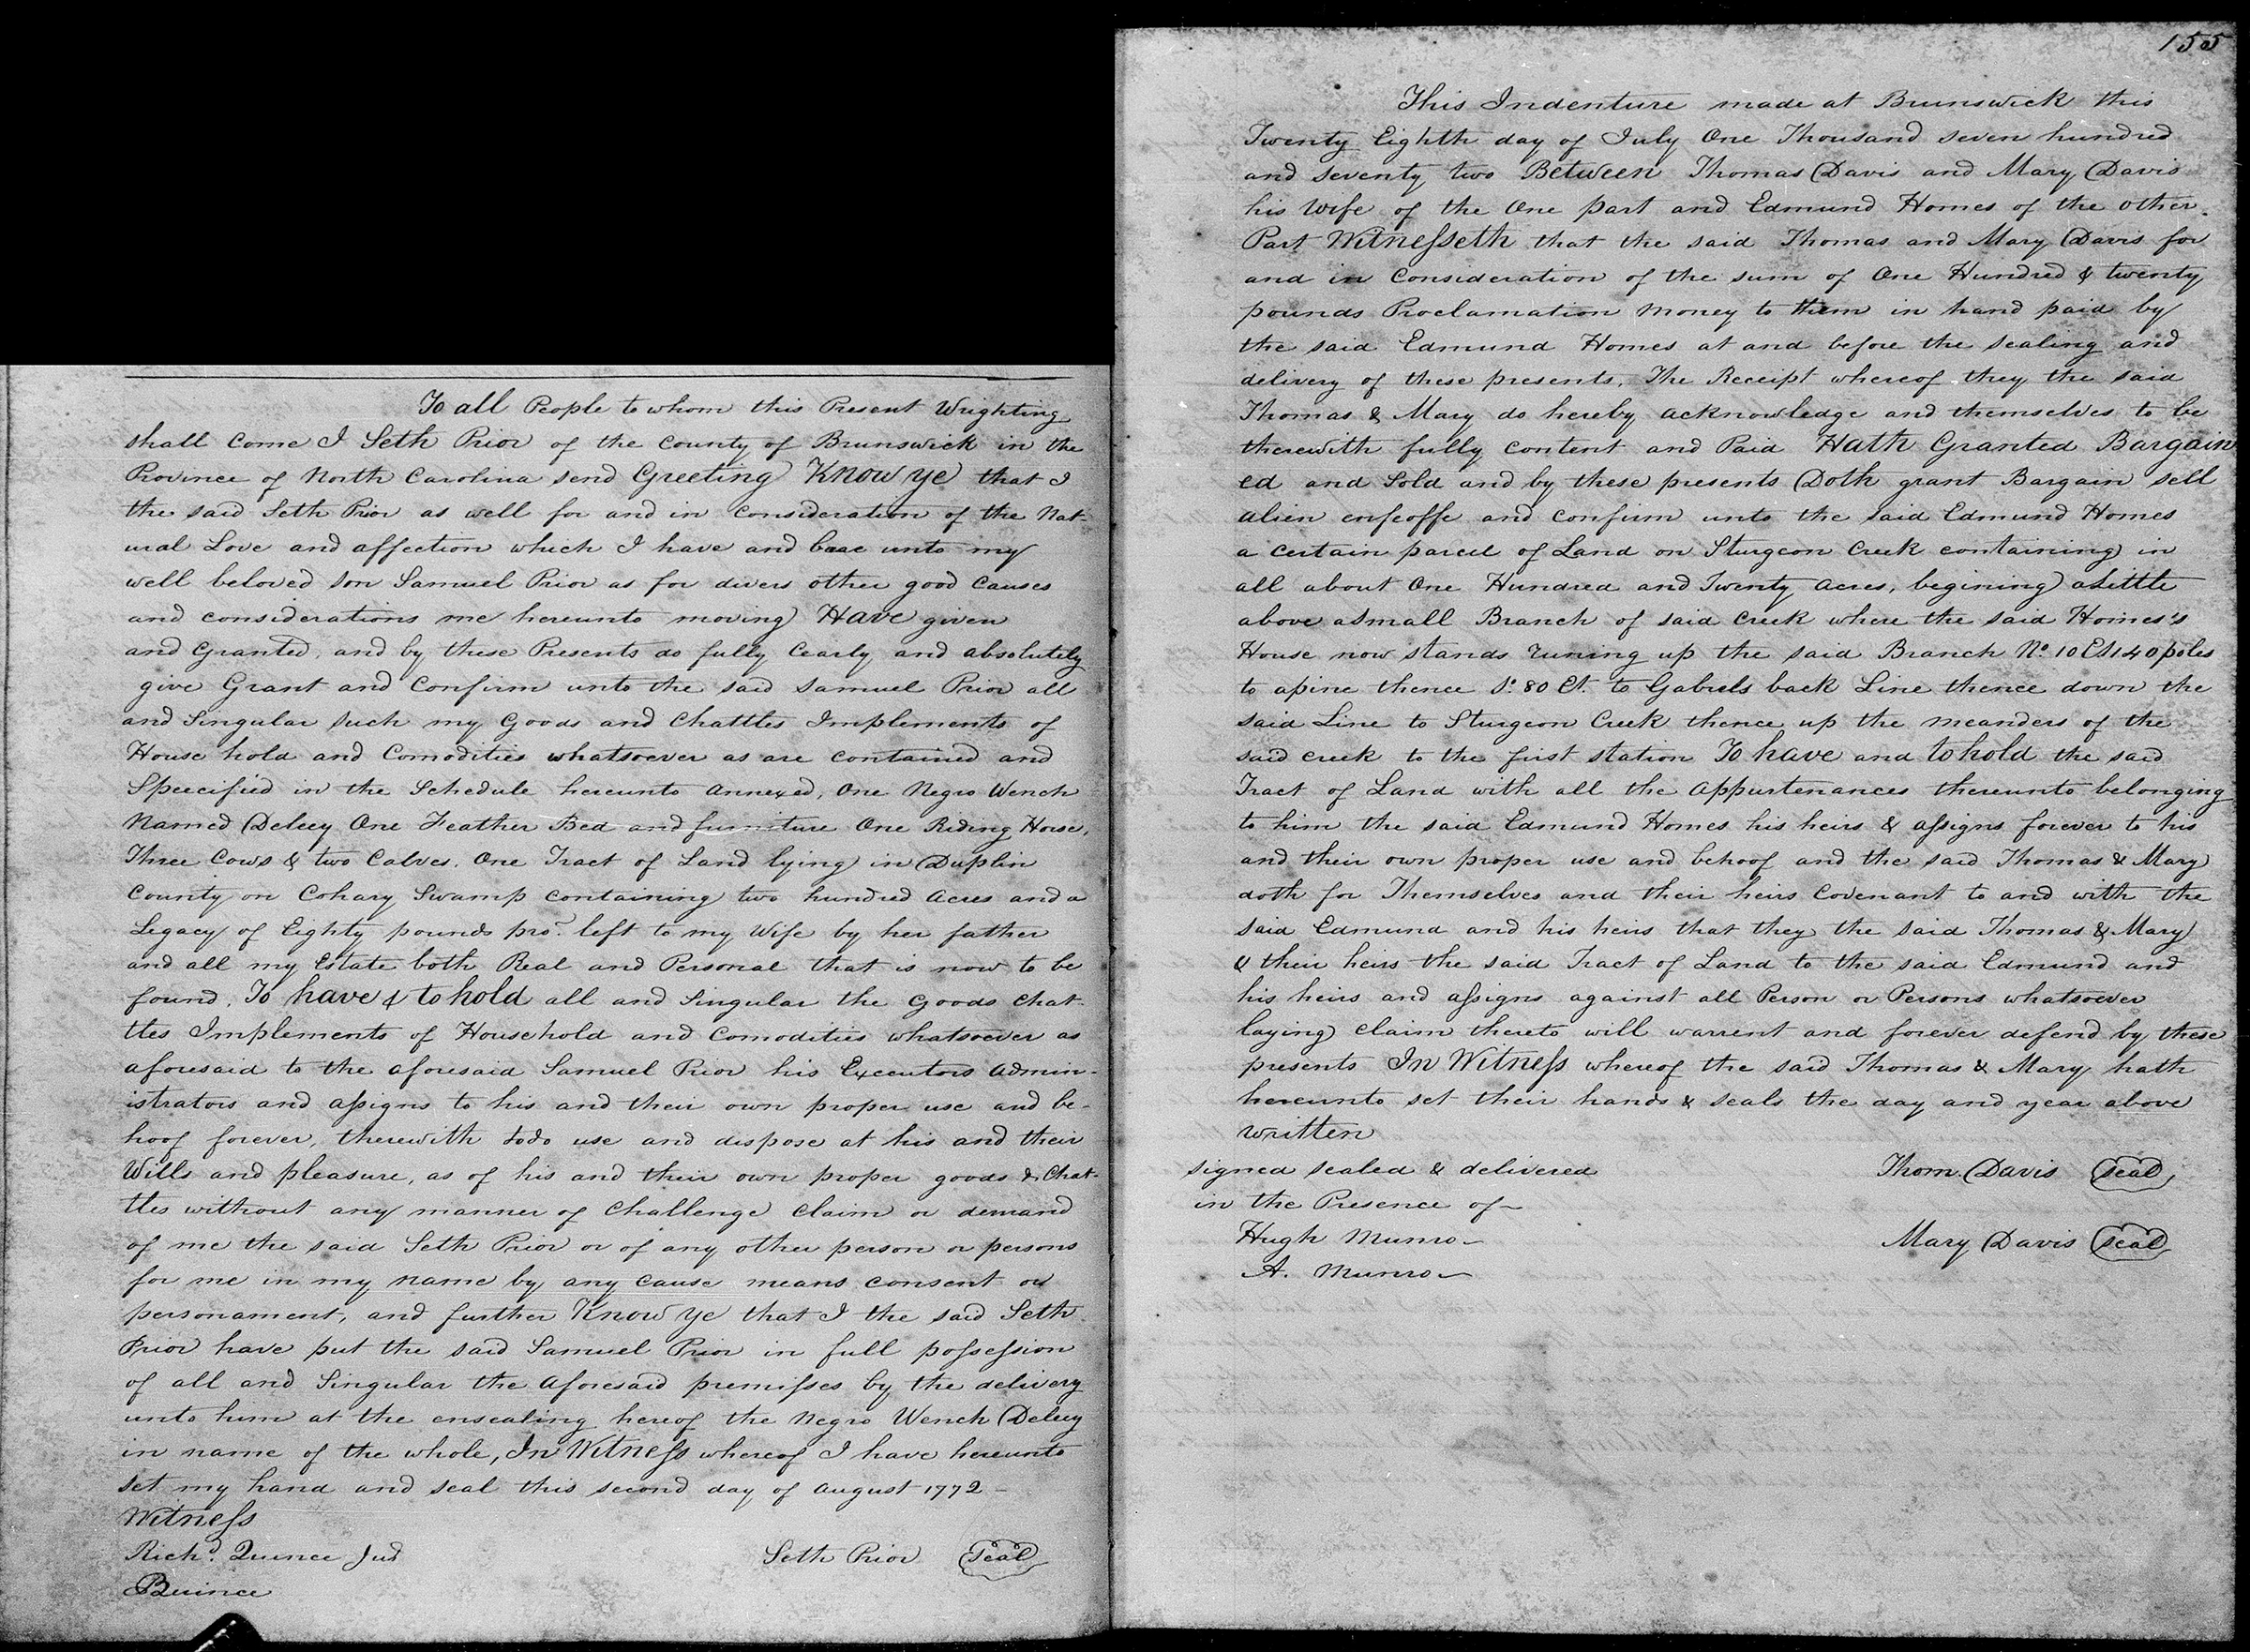 To all People to whom this Present Wrighting
shall Come I Seth Prior of the County of Brunswick in the
Province of North Carolina send Greeting Know ye that I
the said Seth Prior as well for and in Consideration of the Nat-
ural Love and affection which I have and bear unto my
well beloved son Samuel Prior as for divers other good Causes
and considerations me hereunto moving Have given
and Granted, and by these Presents do fully Cearly and absolutely
give Grant and Confirm unto the said Samuel Prior all
and Singular such my Goods and Chattles Implements of
House hold and Comodities whatsoever as are contained and
Specified in the Schedule hereunto annexed, One Negro Wench
Named Delcey One Feather Bed and furniture One Riding Horse,
Three Cows & two Calves. One Tract of Land lying in Duplin
County on Cohary Swamp containing two hundred Acres and a
Legacy of Eighty pounds pro. left to my Wife by her father
and all my Estate both Real and Personal that is now to be
found. To have & to hold all and Singular the Goods Chat-
tles Implements of Household and Comodities whatsoever as
aforesaid to the aforesaid Samuel Prior his Executors Admin-
istrators and assigns to his and their own proper use and be-
hoof forever, therewith todo use and dispose at his and their
Wills and pleasure, as of his and their own proper goods & Chat-
tles without any manner of Challenge Claim or demand
of me the said Seth Prior or of any other person or persons
for me in my name by any cause means consent or
personament, and further Know ye that I the said Seth
Prior have put the said Samuel Prior in full possession
of all and Singular the Aforesaid premisses by the delivery
unto him at the ensealing hereof the Negro Wench Delcey
in name of the whole, In Witness whereof I have hereunto
set my hand and seal this second day of August 1772 -
Witness
Richd. Quince Jur Seth Prior Seal
155
This Indenture made at Brunswick this
Twenty Eighth day of July One Thousand seven hundred
and seventy two Between Thomas Davis and Mary Davis
his Wife of the One part and Edmund Homes of the other.
Part Witnesseth that the said Thomas and Mary Davis for
and in Consideration of the sum of One Hundred & twenty
pounds Proclamation Money to them in hand paid by
the said Edmund Homes at and before the sealing and
delivery of these presents. The Receipt whereof they the said
Thomas & Mary do hereby acknowledge and themselves to be
therewith fully content and Paid Hath Granted Bargain
ed and Sold and by these presents Doth grant Bargain sell
alien enfeoffe and confirm unto the said Edmund Homes
a certain parcel of Land on Sturgeon Creek containing in
all about One Hundred and Twenty Acres, begining a Little
above a small Branch of said Creek where the said Homes's
House now stands runing up the said Branch No. 10 Et 140 poles
to a pine thence So. 80 Et. to Gabriels back Line thence down the
said Line to Sturgeon Creek thence up the meanders of the
said creek to the first station To have and to hold the said
Tract of Land with all the Appurtenances thereunto belonging
to him the said Edmund Homes his heirs & assigns forever to his
and their own proper use and behoof and the said Thomas & Mary
doth for Themselves and their heirs Covenant to and with the
said Edmund and his heirs that they the said Thomas & Mary
& their heirs the said Tract of Land to the said Edmund and
his heirs and assigns against all Person or Persons whatsoever
laying claim thereto will warrent and forever defend by these
presents In Witness whereof the said Thomas & Mary hath
hereunto set their hands & seals the day and year above
written
signed sealed & delivered Thom. Davis seal
in the Presence of
Hugh Munro Mary Davis seal
A. Munro